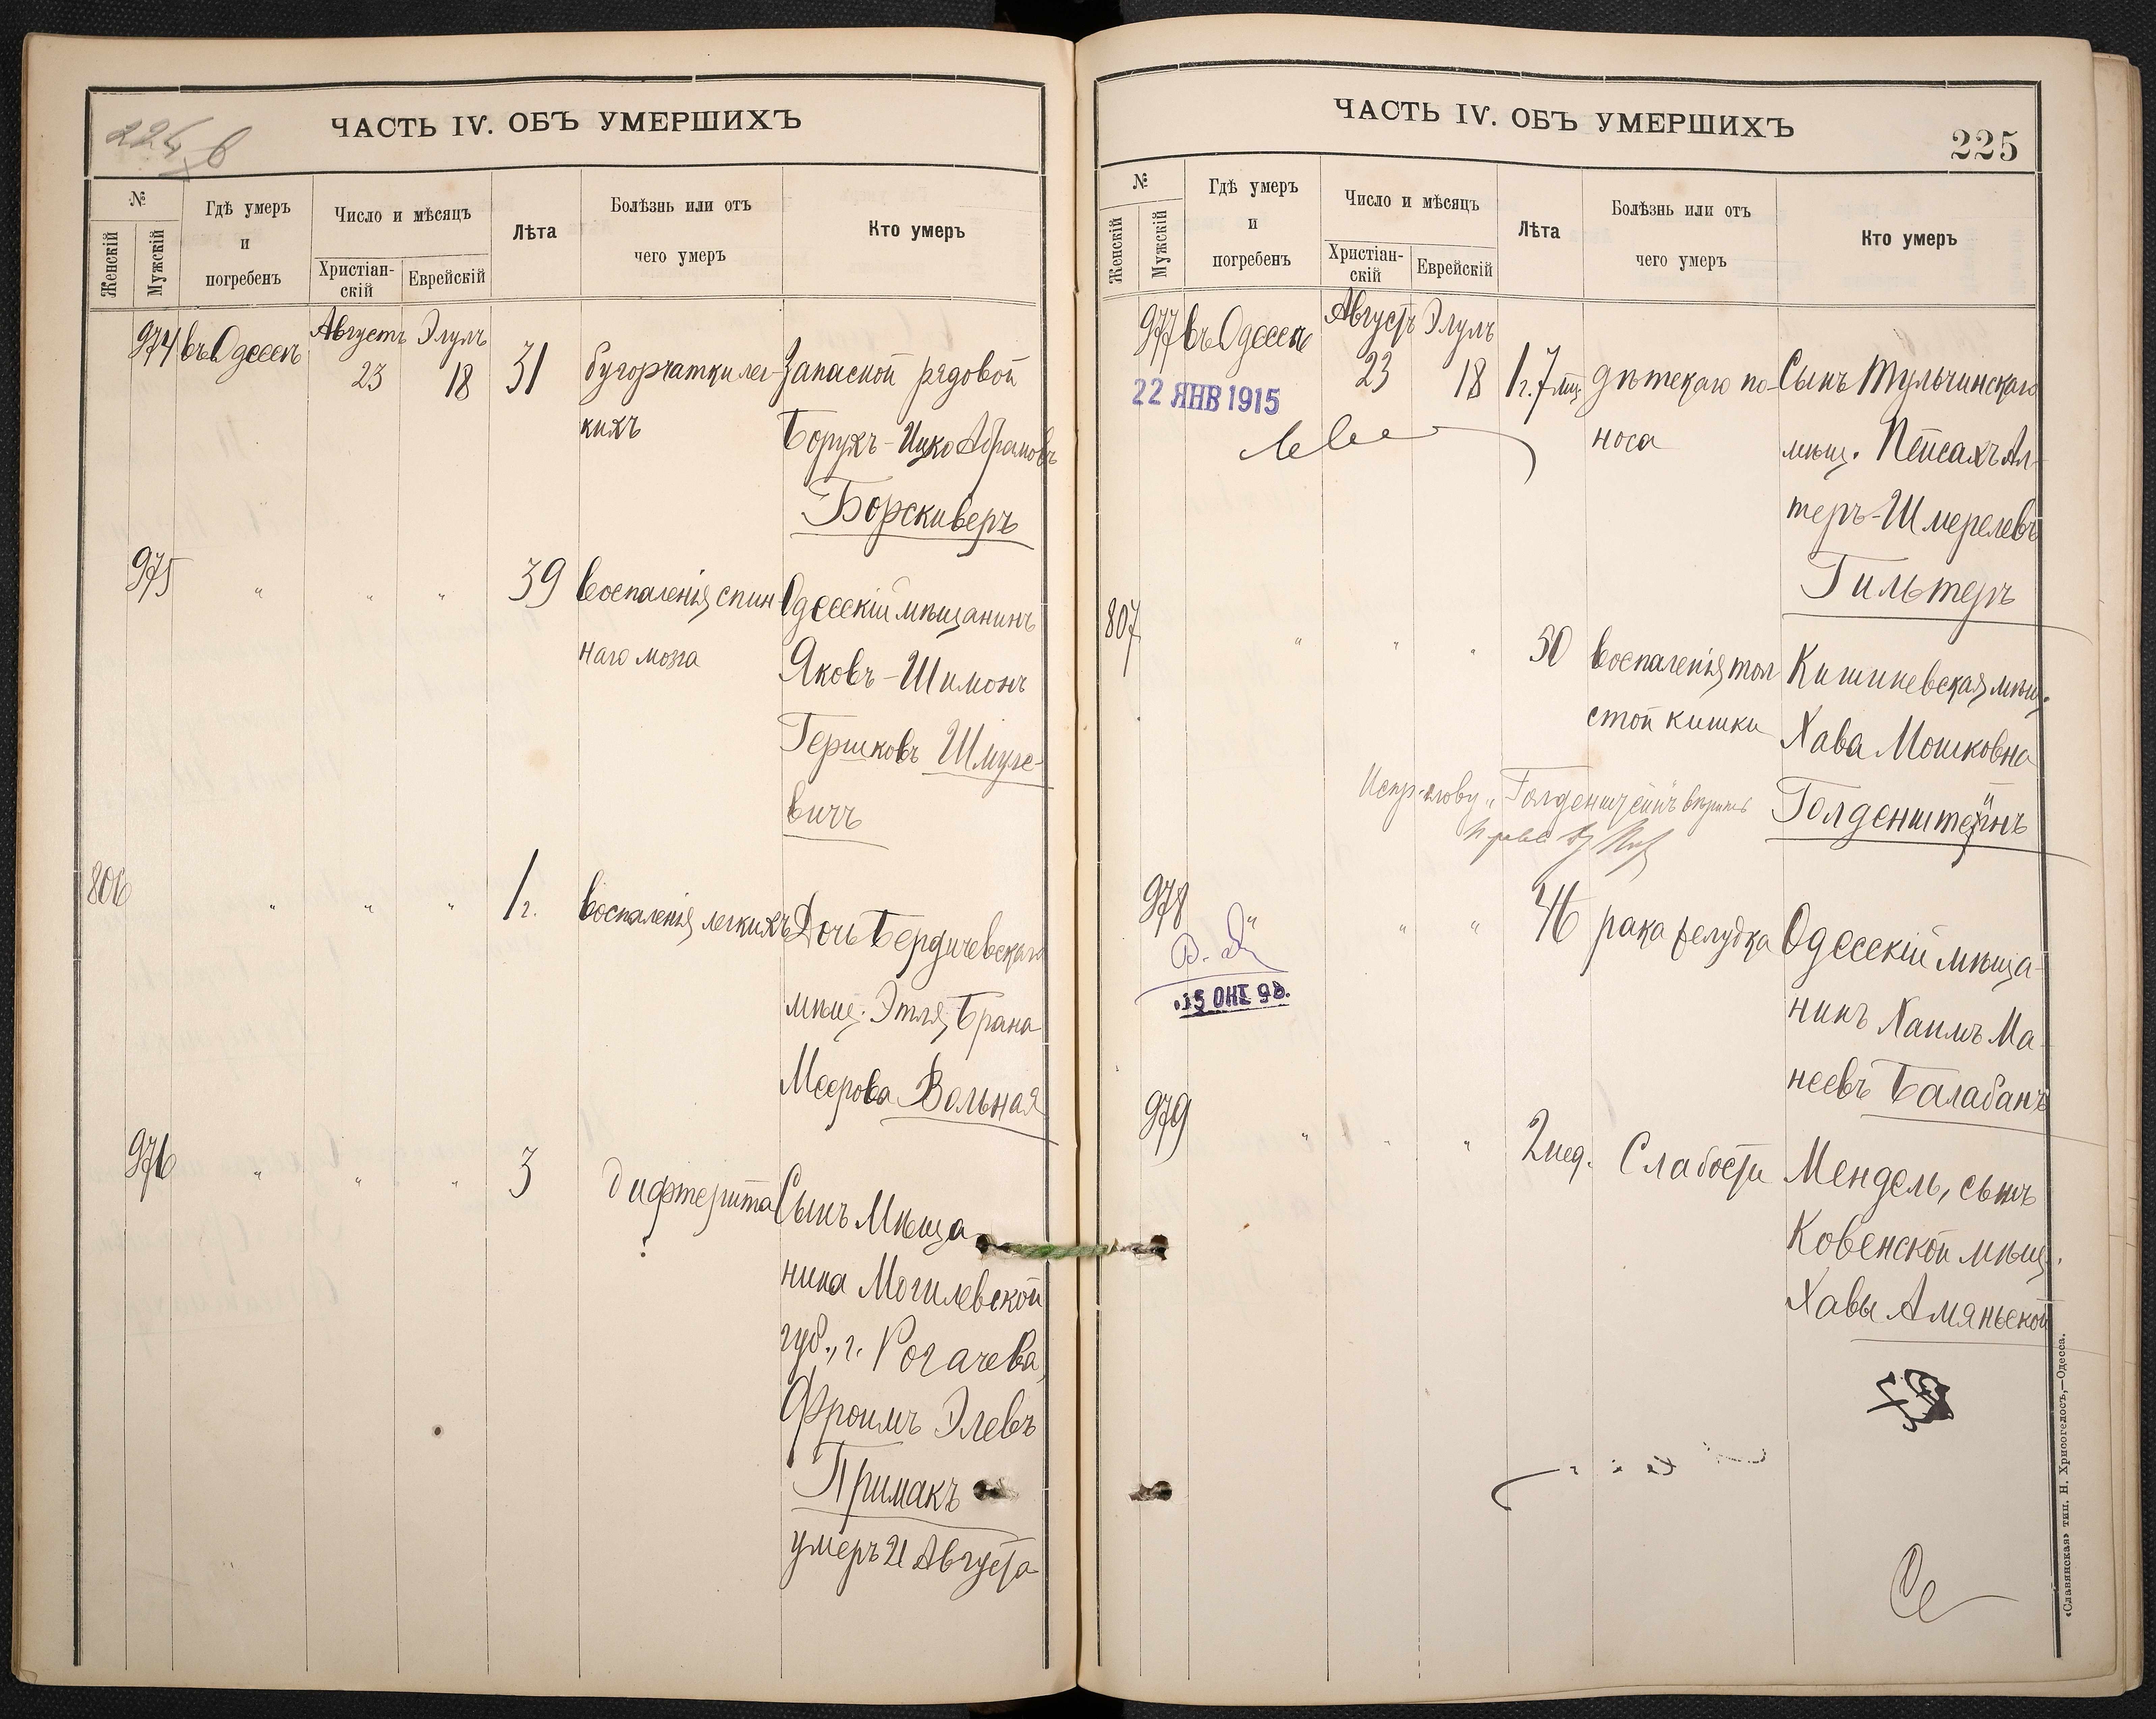 ЧАСТЬ IV. ОБЪ УМЕРШИХЪ
№
Женскій
Мужскій
Гдѣ умеръ
и
погребенъ
Число и мѣсяцъ
Христіан-
скій
Еврейскій
Лѣта
Болѣзнь или отъ
чего умеръ
Кто умеръ
974 въ Одессѣ Августъ 23 Элулъ 18 31 бугорчатки лег- Запасной рядовой
кихъ Борухъ-Ицко Абрамовъ
Борскиверъ
975 " " " 39 воспаленія спин Одесскій мѣщанинъ
наго мозга Яковъ-Шимонъ
Гершковъ Шмуле-
вичъ
806 " " " 1 г. воспаленія легкихъ Дочь Бердичевскаго
мѣщ. Этля, Брана
Меерова Вольная
976 " " " 3 дифтерита Сынъ Мѣща
нина Могилевской
губ., г. Рогачева,
Фроимъ Элевъ
Примакъ
умеръ 21 Августа
ЧАСТЬ IV. ОБЪ УМЕРШИХЪ
225
№
Женскій
Мужскій
Гдѣ умеръ
и
погребенъ
Число и мѣсяцъ
Христіан-
скій
Еврейскій
Лѣта
Болѣзнь или отъ
чего умеръ
Кто умеръ
977 въ Одессѣ Августъ 23 Элулъ 18 1 г. 7 мц. дѣтскаго по- Сынъ Тульчинскаго
22 ЯНВ 1915
носа мѣщ. Пейсахъ Ал-
теръ-Шмерелевъ
Гильтеръ
807 " " " 30 воспаленія тол Кишиневская мѣщ.
стой кишки Хава Мошковна
Голденштейнъ
Испр. слову "Голденштейнъ" вѣрить
978 " " " 46 рака желудка Одесскій мѣща-
15 ОКТ 98.
нинъ Хаимъ Ма-
неевъ Балабанъ
979 " " " 2 нед. Слабости Мендель, сынъ
Ковенской мѣщ.
Хавы Амяньской
«Славянская» тип. Н. Хрисогелосъ,—Одесса.